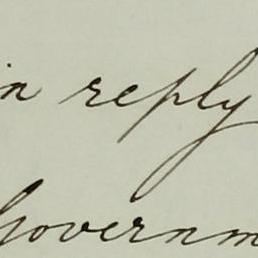 in reply
Governm